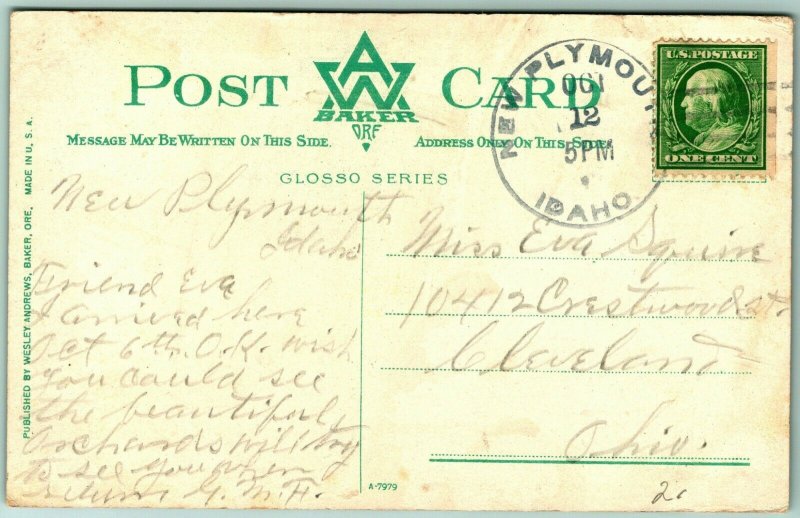 POST CARD
AW
BAKER
ORE
MESSAGE MAY BE WRITTEN ON THIS SIDE.
ADDRESS ONLY ON THIS SIDE.
GLOSSO SERIES
NEW PLYMOUTH
OCT
12
5 PM
IDAHO.
U.S. POSTAGE
ONE CENT
New Plymouth
Idaho
Friend Eva
I arrived here
Oct 6th. O.K. wish
you could see
the beautiful
Orchards will try
to see you when
return G.M.H.
Miss Eva Squire
10412 Crestwood st.
Cleveland
Ohio.
PUBLISHED BY WESLEY ANDREWS, BAKER, ORE. MADE IN U. S. A.
A-7979